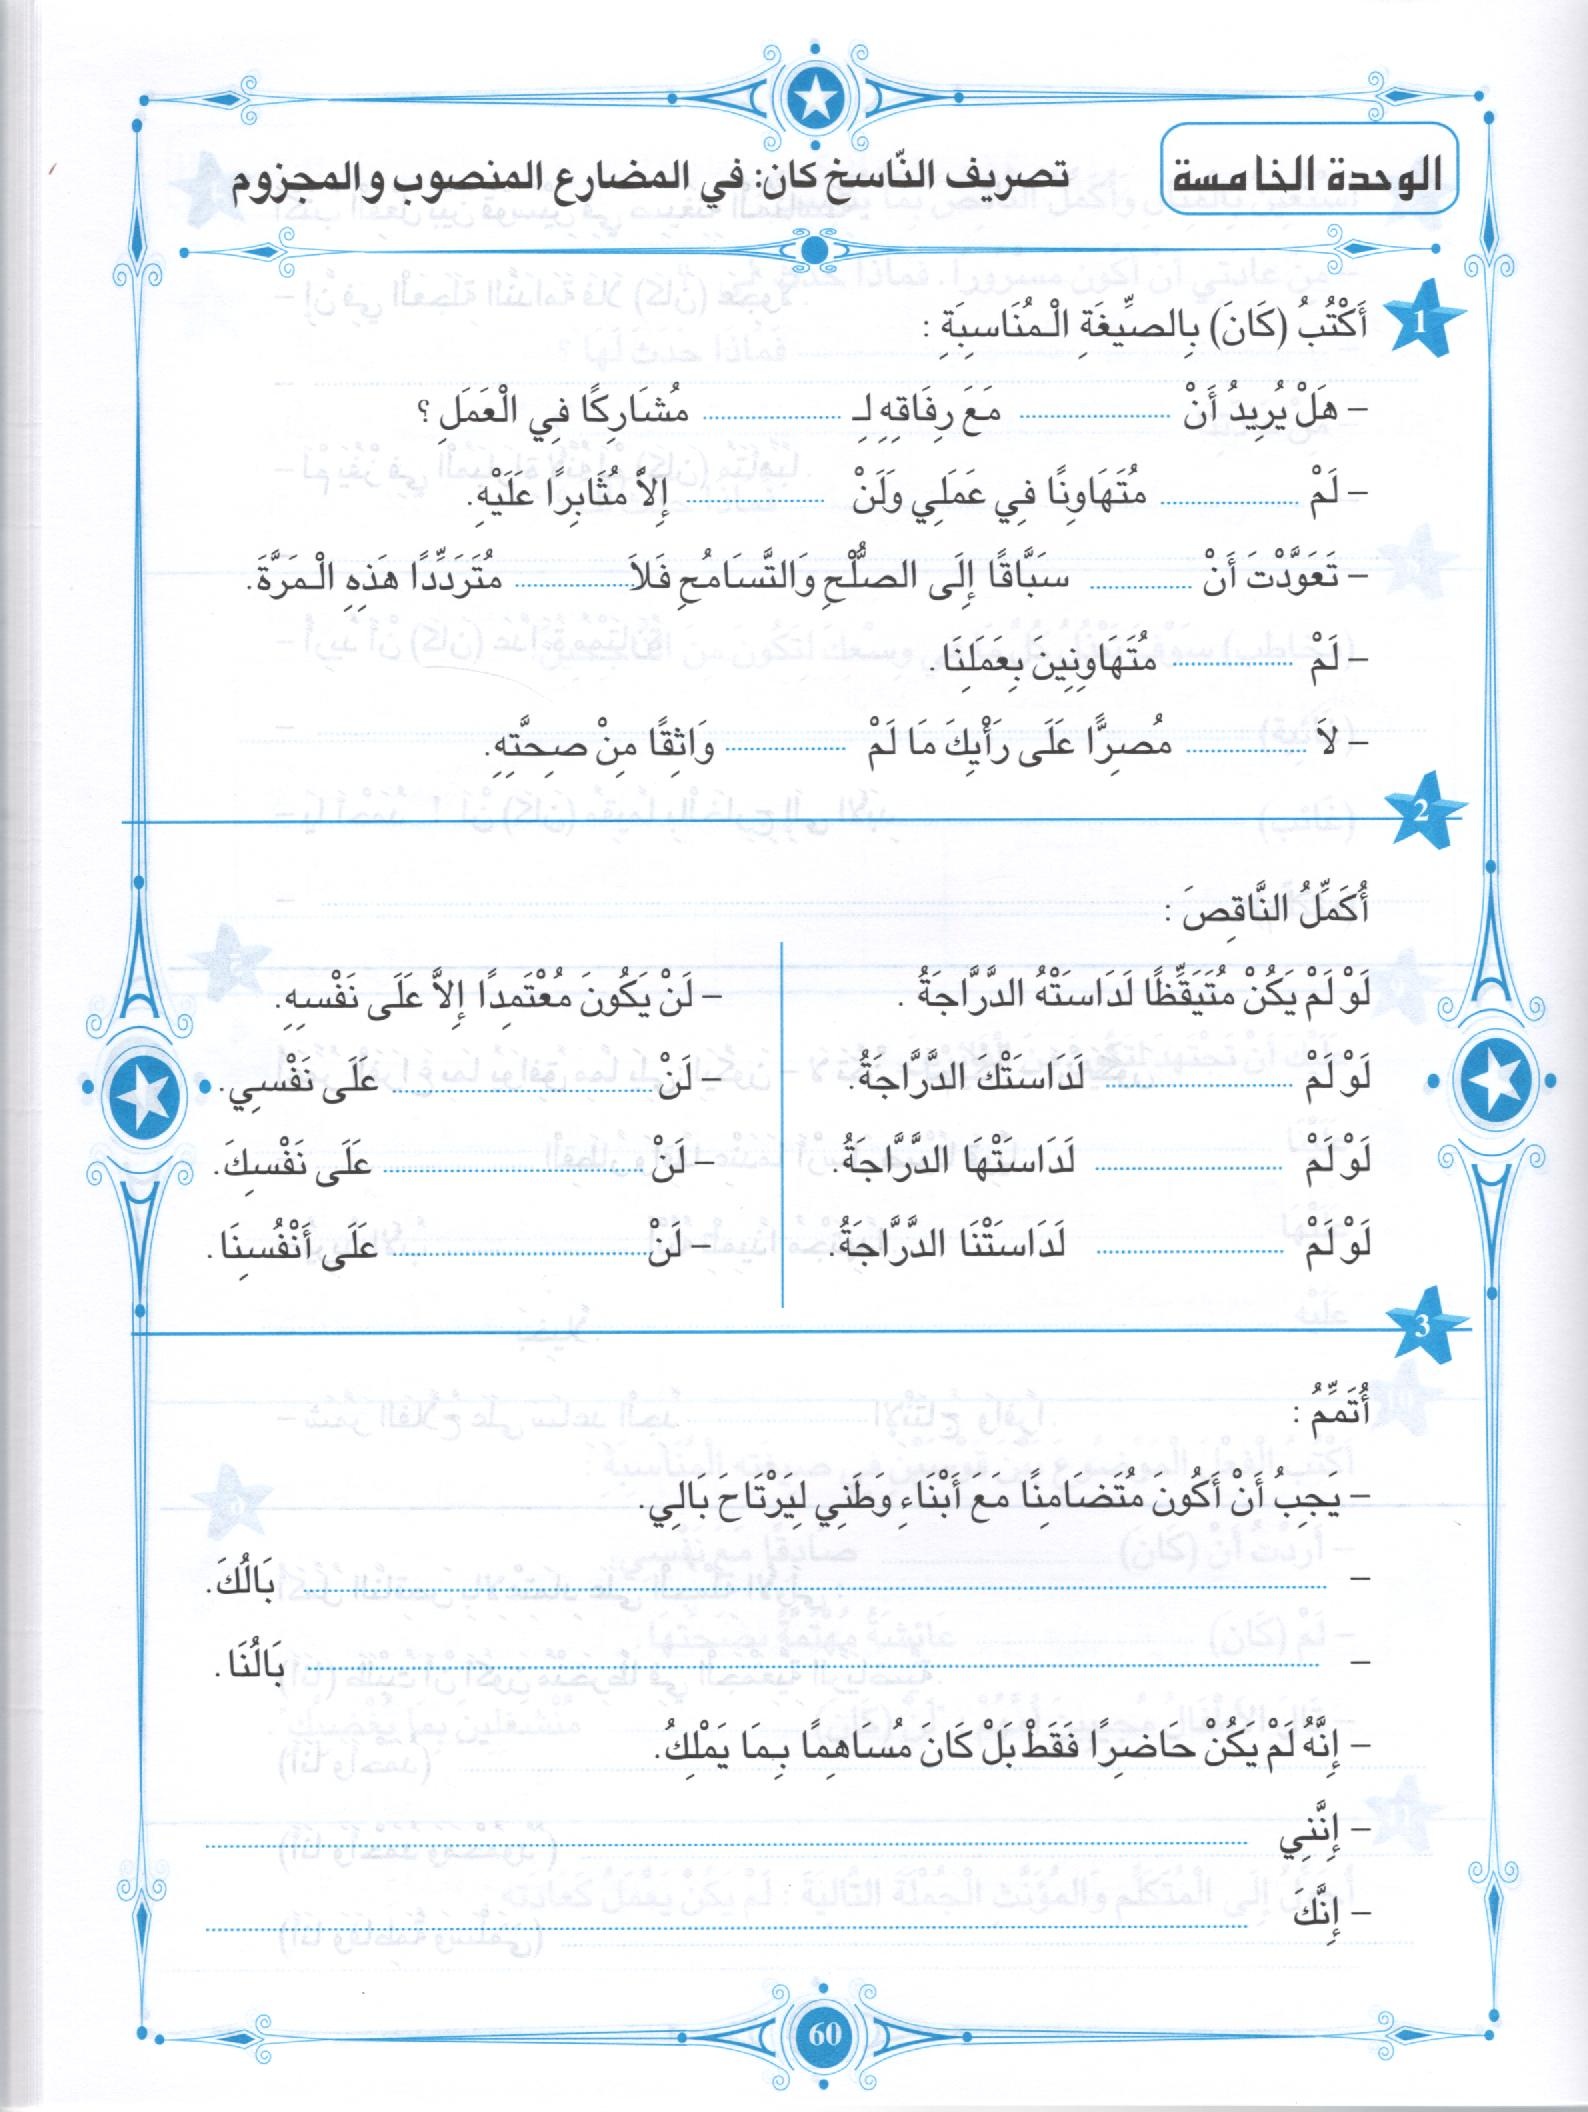 الوحدة الخامسة
تصريف النّاسخ كان: في المضارع المنصوب والمجزوم
1
أَكْتُبُ (كَانَ) بِالصِّيغَةِ الْمُنَاسِبَةِ :
– هَلْ يُرِيدُ أَنْ ............ مَعَ رِفَاقِهِ لِـ ............ مُشَارِكًا فِي الْعَمَلِ ؟
– لَمْ ............ مُتَهَاوِنًا فِي عَمَلِي وَلَنْ ............ إِلاَّ مُثَابِرًا عَلَيْهِ.
– تَعَوَّدْتَ أَنْ ............ سَبَّاقًا إِلَى الصُّلْحِ وَالتَّسَامُحِ فَلاَ ............ مُتَرَدِّدًا هَذِهِ الْمَرَّةَ.
– لَمْ ............ مُتَهَاوِنِينَ بِعَمَلِنَا.
– لاَ ............ مُصِرًّا عَلَى رَأْيِكَ مَا لَمْ ............ وَاثِقًا مِنْ صِحَّتِهِ.
2
أُكَمِّلُ النَّاقِصَ :
لَوْ لَمْ يَكُنْ مُتَيَقِّظًا لَدَاسَتْهُ الدَّرَّاجَةُ .
لَوْ لَمْ ............ لَدَاسَتْكَ الدَّرَّاجَةُ.
لَوْ لَمْ ............ لَدَاسَتْهَا الدَّرَّاجَةُ.
لَوْ لَمْ ............ لَدَاسَتْنَا الدَّرَّاجَةُ.
– لَنْ يَكُونَ مُعْتَمِدًا إِلاَّ عَلَى نَفْسِهِ.
– لَنْ ............ عَلَى نَفْسِي.
– لَنْ ............ عَلَى نَفْسِكَ.
– لَنْ ............ عَلَى أَنْفُسِنَا.
3
أُتَمِّمُ :
– يَجِبُ أَنْ أَكُونَ مُتَضَامِنًا مَعَ أَبْنَاءِ وَطَنِي لِيَرْتَاحَ بَالِي.
– ............ بَالُكَ.
– ............ بَالُنَا.
– إِنَّهُ لَمْ يَكُنْ حَاضِرًا فَقَطْ بَلْ كَانَ مُسَاهِمًا بِمَا يَمْلِكُ.
– إِنَّنِي ............
– إِنَّكَ ............
60